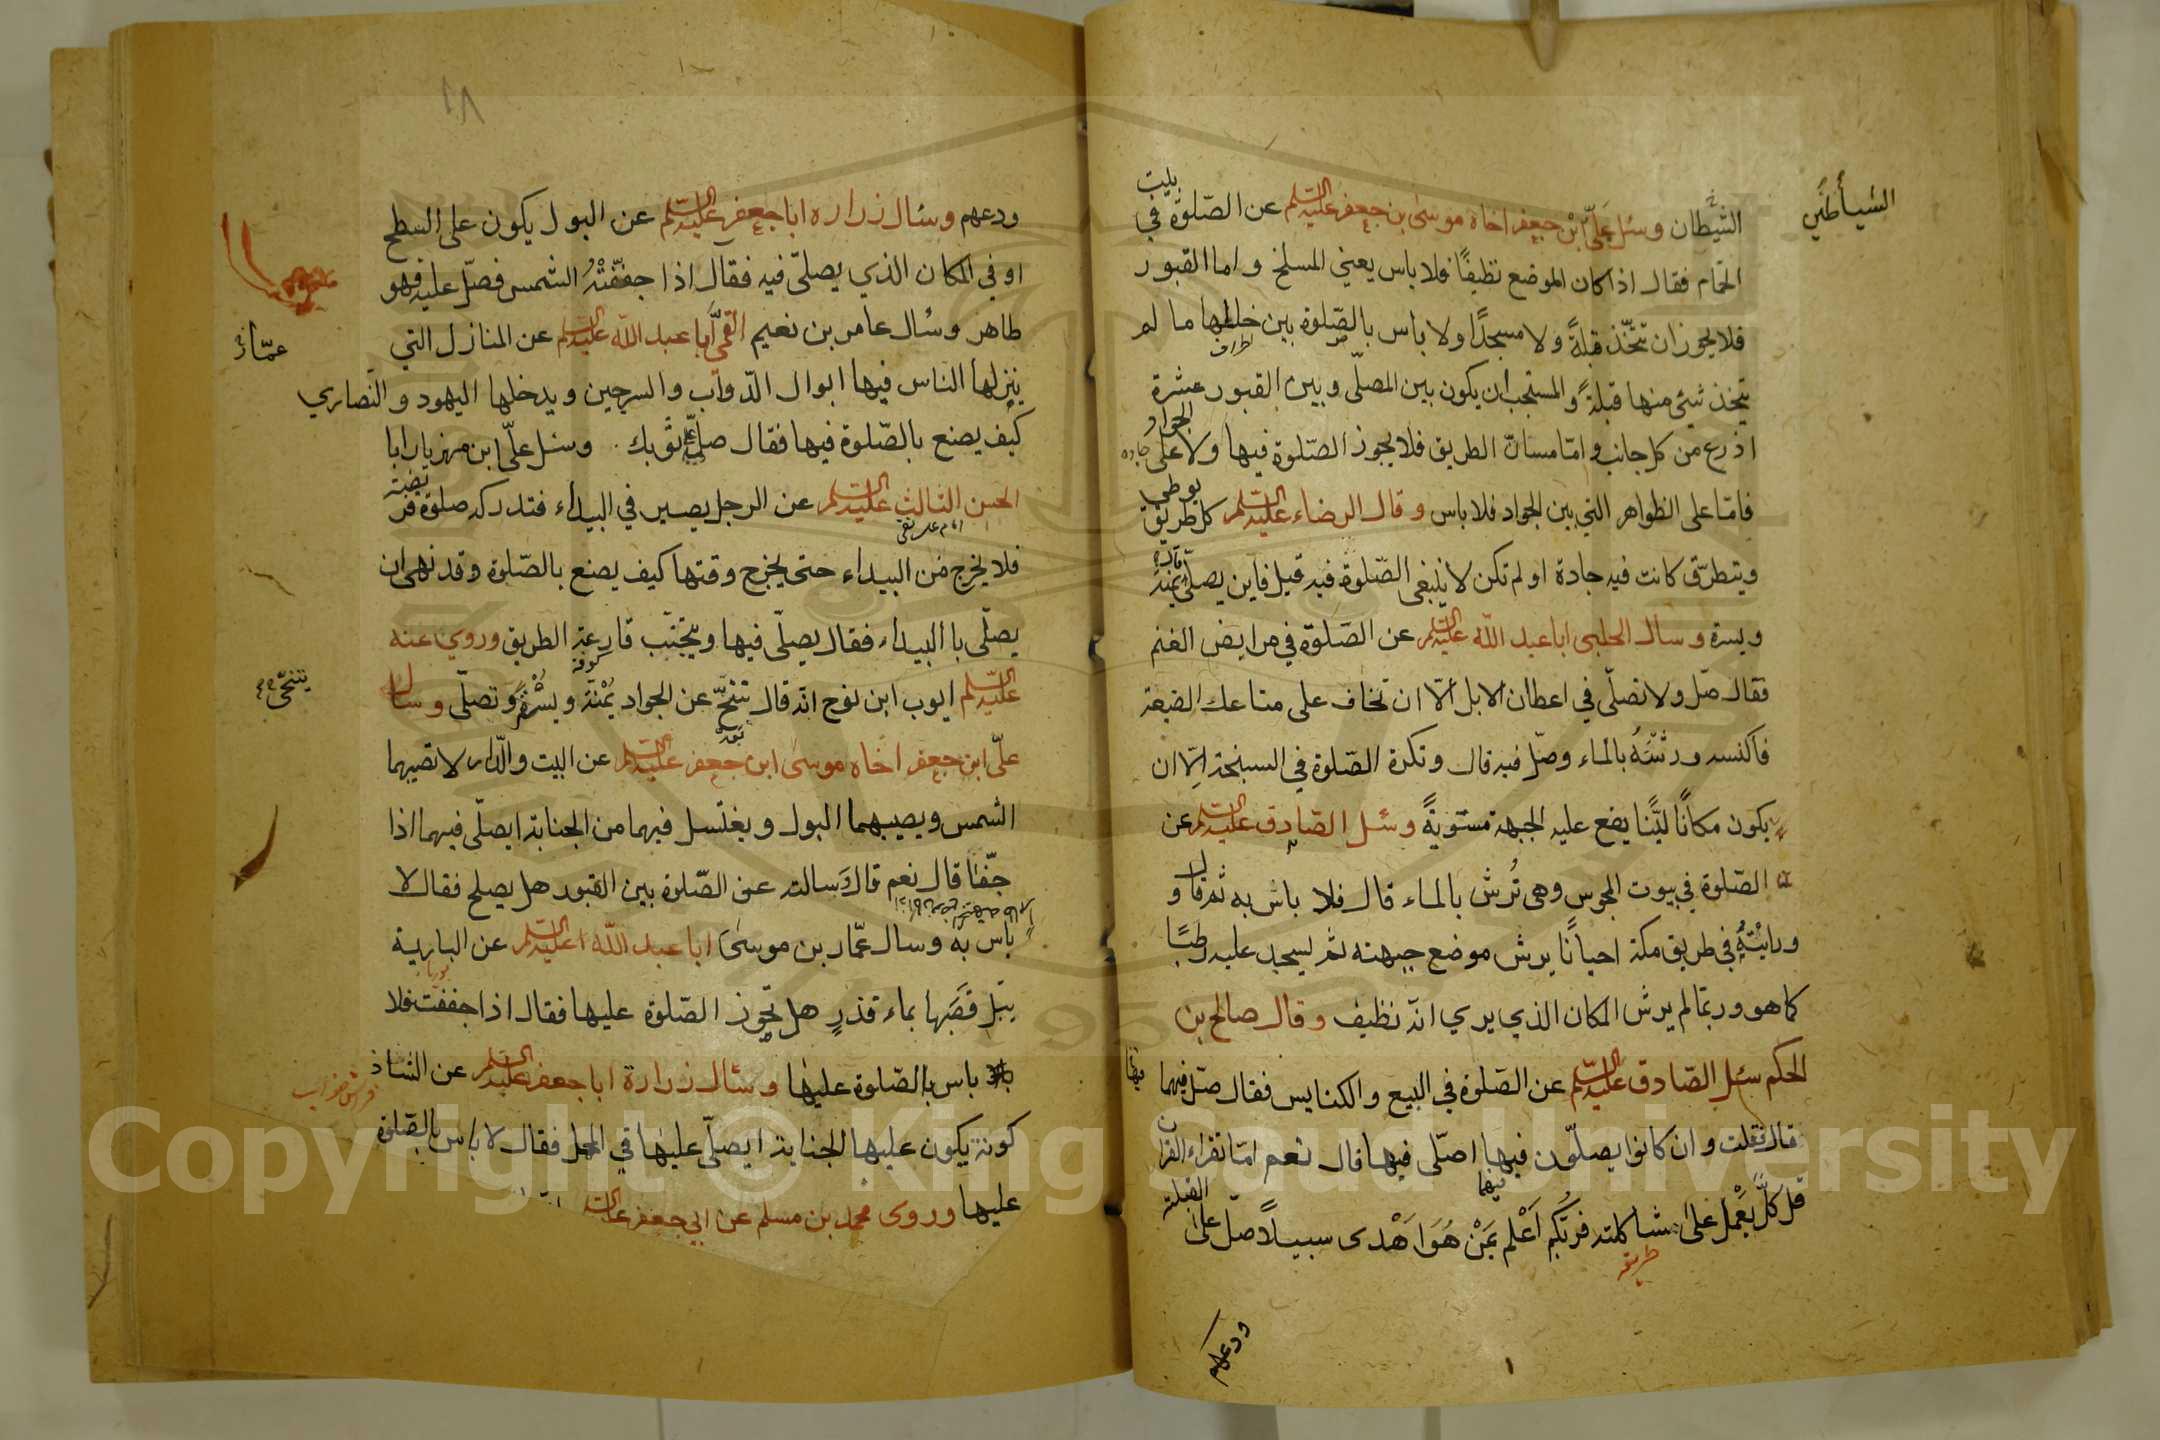 السيأطين
الشيطان وسئل علىّ ابن جعفر اخاه موسى بن جعفر عليه السلم عن الصّلوة في بيت
الحمّام فقال اذا كان الموضع نظيفًا فلا باس يعني المسلخ واما القبور
فلا يجوز ان تتّخذ قبلةً ولا مسجدًا ولا باس بالصّلوة بين خللها ما لم
يتخذ شئ منها قبلة والمستحب ان يكون بين المصلّي وبين القبور عشرة
اذرع من كل جانب وامّا مسانّ الطريق فلا يجوز الصّلوة فيها ولا على الجواد
فامّا على الظواهر التي بين الجواد فلا باس وقال الرضاء عليه السلم كل طريق يوطى
ويتطرّق كانت فيه جادة او لم تكن لا ينبغى الصّلوة فيه قيل فاين يصلّى يمنة
ويسرة وسال الحلبى ابا عبد اللّه عليه السلم عن الصّلوة في مرايض الغنم
فقال صّل ولا تصلّى في اعطان الابل الّا ان تخاف على متاعك الضيعة
فاكنسه ورشّهُ بالماء وصّل فيه قال وتكرة الصّلوة في السبخة الّا ان
يكون مكانًا ليّنًا يقع عليه الجبهة مستويةً وسئل الصّادق عليه السلم عن
الصّلوة في بيوت المجوس وهى تُرش بالماء قال فلا باس به ثم قال و
ورايتهُ في طريق مكة احيانًا يرش موضع جبهته ثم يسجد عليه رطبًا
كما هو وربّما لم يرش المكان الذي يري انه نظيف وقال صالح بن
الحكم سئل الصّادق عليه السلم عن الصّلوة في البيع والكنايس فقال صّل فيها
قال فقلت وان كانوا يصلّون فيها اصلّى فيها قال نعم امّا تقراء القران
قل كلٌّ يَعْمَل على شاكلته فربّكم اَعْلم بمَنْ هَوَ اَهْدى سبيلاً صلّ على القبلة
طريقه
ودعهم
٨١
ودعهم وسئال زراره ابا جعفر عليه السلم عن البول يكون على السطح
او في المكان الذي يصلّى فيه فقال اذا جففّتْهُ الشمس فصّل عليه فهو
طاهر وسئال عامر بن نعيم القمّى ابا عبد اللّه عليه السلم عن المنازل التي
عمّار
ينزلها الناس فيها ابوال الدّواب والسرجين ويدخلها اليهود والنّصاري
كيف يصنع بالصّلوة فيها فقال صلّ على ثوبك وسئل علّى ابن مهزيار ابا
الحسن الثالث عليه السلم عن الرجل يصير في البيداء فتدركه صلوة فريضة
فلا يخرج من البيداء حتى يخرج وقتها كيف يصنع بالصّلوة وقد نهى ان
يصلّى با البيداء فقال يصلّى فيها ويتجنّب قارعة الطريق وروي عنه
عليه السلم ايوب ابن نوح انه قال تتنحّ عن الجواد يُمْنَة ويُسْرَةً وتصلّى وسال
يتنحّى
علّى ابن جعفر اخاه موسى ابن جعفر عليه السلم عن البيت والدّار لا تصيبهما
الشمس ويصيبهما البول ويغتسل فيهما من الجنابة ايصلّى فيهما اذا
جفّا قال نعم قال وَسالته عن الصّلوة بين القبور هل يصلح فقال لا
باس به وسال عمّار بن موسىَ ابا عبد اللّه عليه السلم عن البارية
يبّل قَصَبَها بماء قذرٍ هل تجوز الصّلوة عليها فقال اذا جففت فلا
باس بالصّلوة عليها وسئال زرارة ابا جعفر عليه السلم عن الشاذ
كونة يكون عليها الجنابة ايصلّى عليها في المحمل فقال لا باس بالصّلوة
عليها وروى محمد بن مسلم عن ابي جعفر عليه السلم
Copyright © King Saud University